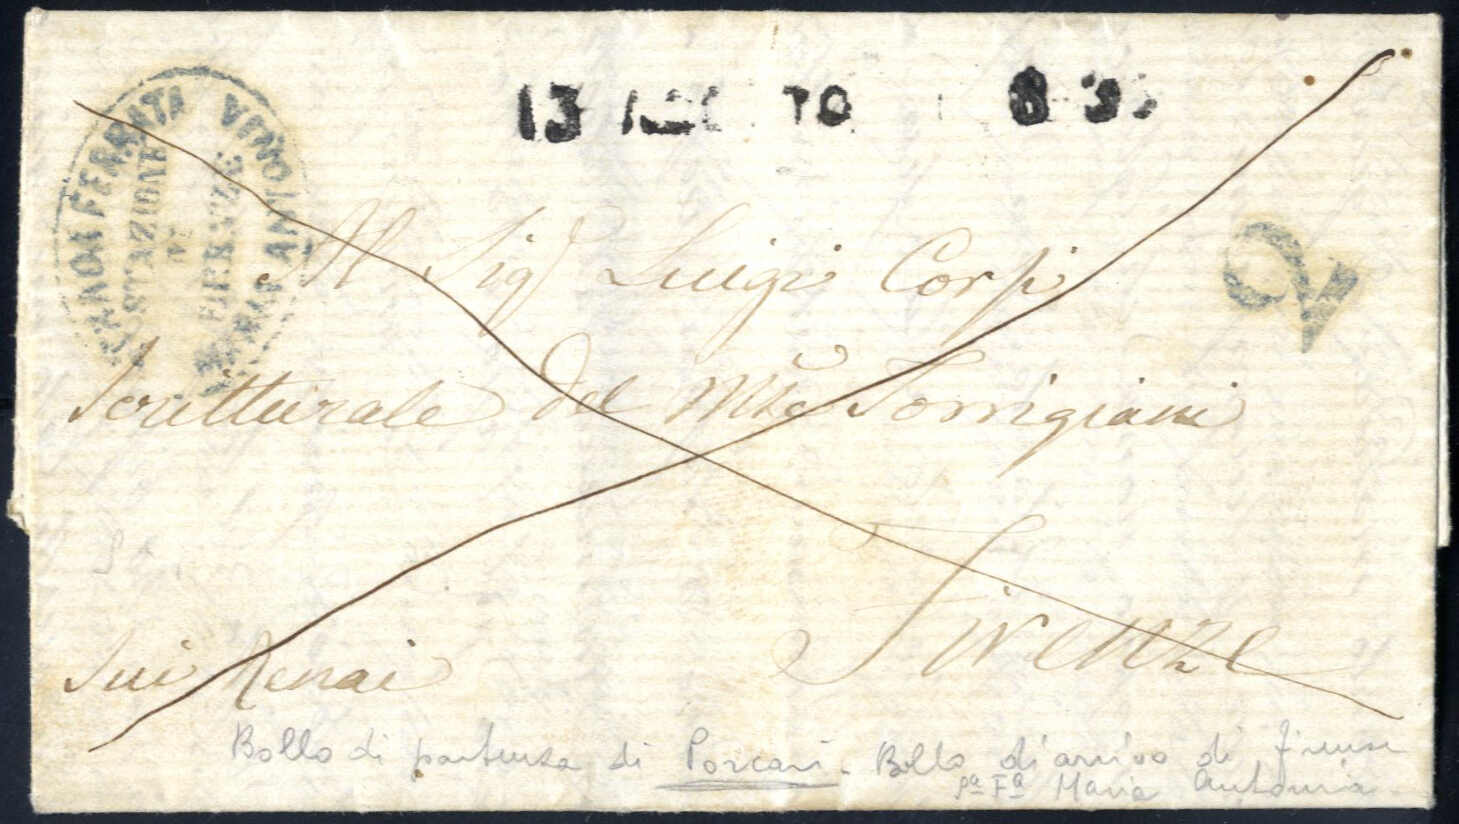 STRADA FERRATA MARIA ANTONIA
STAZIONE
DI
FIRENZE
13 AGOSTO
2
Al Sigr Luigi Corpi
Scritturale del Mse Torrigiani
Firenze
Sui Renai
Bollo di partenza di Porcari. Bollo di arrivo di Firenze
Sa Fa Maria Antonia